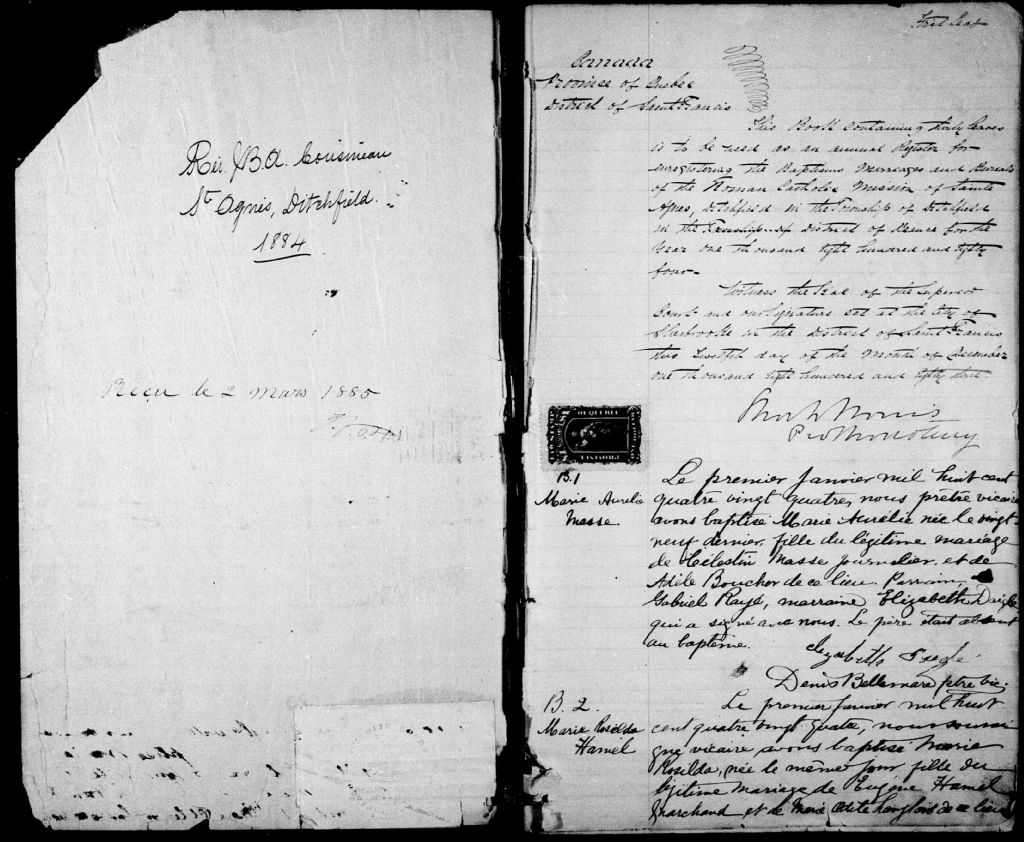 Rév. J.B.A. Cousineau
St Agnès, Ditchfield.
1884
Reçu le 2 mars 1885
First Leaf
Canada
Province of Quebec
District of Saint Francis
This Book containing forty leaves
is to be used as an annual Register for
enregistering the Baptisms Marriages and Burials
of the Roman Catholic Mission of Sainte
Agnes, Ditchfield in the Township of Ditchfield
in the Township of District of Beauce for the
Year one thousand eight hundred and eighty
four-
Witness the Seal of the Superior
Court and our Signature set at the City of
Sherbrooke in the District of Saint Francis
this twelfth day of the Month of December
one thousand eight hundred and eighty three.
Prothonotary
OF QUEBEC
PROVINCE
B.1
Marie Aurelie
Masse
Le premier Janvier mil huit cent
quatre vingt quatre, nous prêtre vicaire
avons baptisé Marie Aurélie née le vingt-
neuf dernier, fille du légitime mariage
de Célestin Masse journalier, et de
Adile Boucher de ce lieu. Parrain,
Gabriel Rayé, marraine Elizabeth
qui a signé avec nous. Le père était absent
au baptême.
Elizabeth
Denis Bellemare ptre vic.
B. 2.
Marie Rosilda
Hamel
Le premier Janvier mil huit
cent quatre vingt quatre, nous soussi
gné vicaire avons baptisé Marie
Rosilda, née le même jour fille du
légitime mariage de Eugène Hamel
Marchand et de Marie Langlois de ce lieu